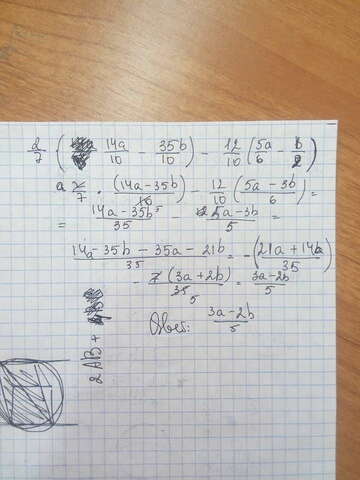 2/7 · ( 14a/10 - 35b/10 ) - 12/10 ( 5a/6 - b/2 )
2/7 · (14a-35b)/10 - 12/10 ( 5a - 3b / 6 ) =
= 14a-35b/35 - 5a-3b/5 =
14a-35b - 35a-21b/35 = -(21a+14b/35)
- 7(3a+2b)/35 5 = 3a-2b/5
Ответ: 3a-2b/5
2 AB +